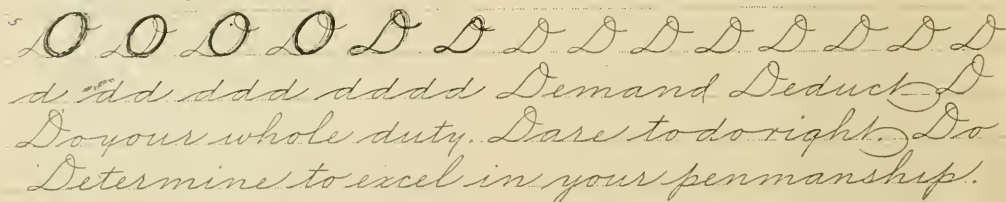 5 D D D D D D D D D D D D D D
d dd ddd dddd Demand Deduct D
Do your whole duty. Dare to do right. Do
Determine to excel in your penmanship.